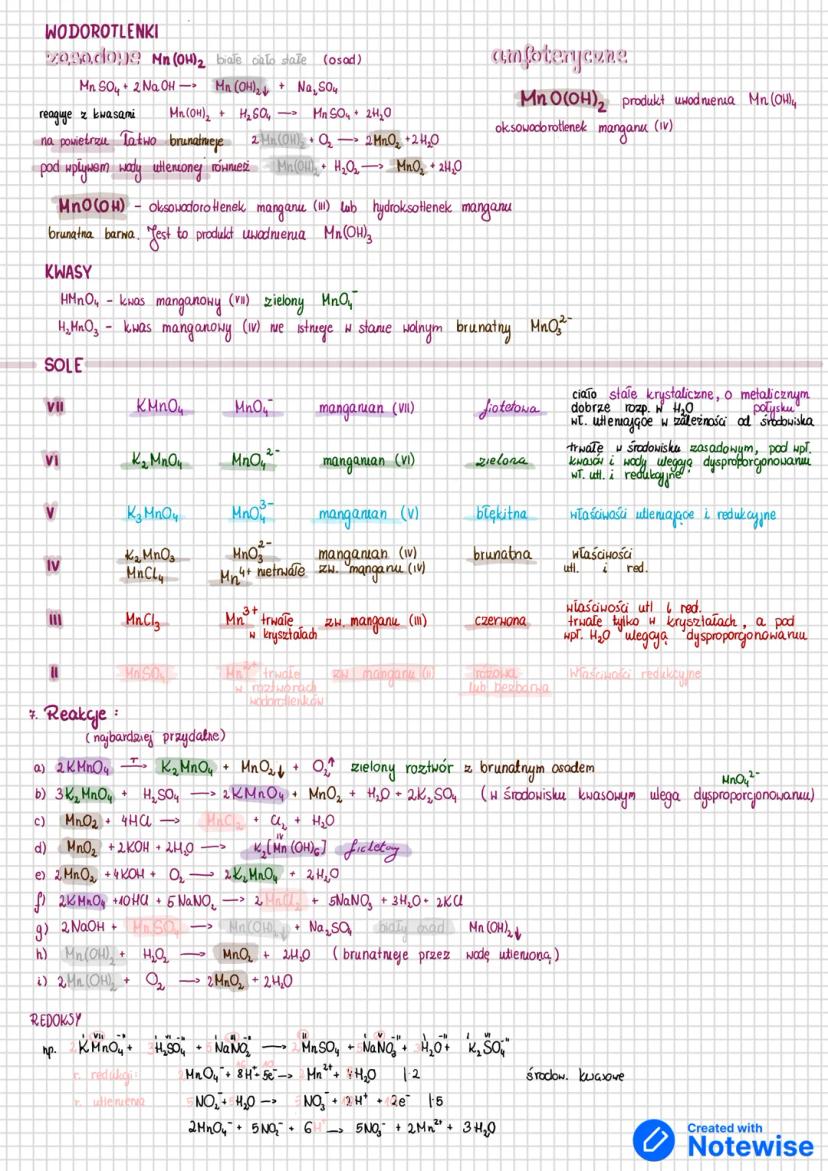 WODOROTLENKI
zasadowe Mn(OH)₂ białe ciało stałe (osad)
MnSO₄ + 2NaOH → Mn(OH)₂↓ + Na₂SO₄
reaguje z kwasami Mn(OH)₂ + H₂SO₄ → MnSO₄ + 2H₂O
na powietrzu łatwo brunatnieje 2Mn(OH)₂ + O₂ → 2MnO₂ + 2H₂O
pod wpływem wody utlenionej również Mn(OH)₂ + H₂O₂ → MnO₂ + 2H₂O
amfoteryczne
MnO(OH)₂ produkt uwodnienia Mn(OH)₄
oksowodorotlenek manganu (IV)
MnO(OH) – oksowodorotlenek manganu (III) lub hydroksotlenek manganu
brunatna barwa. Jest to produkt uwodnienia Mn(OH)₃
KWASY
HMnO₄ – kwas manganowy (VII) zielony MnO₄⁻
H₂MnO₃ – kwas manganowy (IV) nie istnieje w stanie wolnym brunatny MnO₃²⁻
SOLE
VII KMnO₄ MnO₄⁻ manganian (VII) fioletowa ciało stałe krystaliczne, o metalicznym
połysku
dobrze rozp. w H₂O
wł. utleniające w zależności od środowiska
VI K₂MnO₄ MnO₄²⁻ manganian (VI) zielona trwałe w środowisku zasadowym, pod wpł.
kwasów i wody ulegają dysproporcjonowaniu
wł. utl. i redukcyjne
V K₃MnO₄ MnO₄³⁻ manganian (V) błękitna właściwości utleniające i redukcyjne
IV K₂MnO₃ MnO₃²⁻ manganian (IV) brunatna właściwości
MnCl₄ Mn⁴⁺ nietrwałe zw. manganu (IV) utl. i red.
III MnCl₃ Mn³⁺ trwałe w kryształach zw. manganu (III) czerwona właściwości utl i red.
trwałe tylko w kryształach, a pod
wpł. H₂O ulegają dysproporcjonowaniu
II MnSO₄ Mn²⁺ trwałe zw manganu (II) różowa właściwości redukcyjne
w roztworach lub bezbarwna
wodorotlenków
7. Reakcje :
(najbardziej przydatne)
a) 2KMnO₄ –T→ K₂MnO₄ + MnO₂↓ + O₂↑ zielony roztwór z brunatnym osadem
MnO₄²⁻
b) 3K₂MnO₄ + H₂SO₄ → 2KMnO₄ + MnO₂ + H₂O + 2K₂SO₄ (w środowisku kwasowym ulega dysproporcjonowaniu)
c) MnO₂ + 4HCl → MnCl₂ + Cl₂ + H₂O
d) MnO₂ + 2KOH + 2H₂O → K₂[Mn(OH)₆] fioletowy
IV
e) 2MnO₂ + 4KOH + O₂ → 2K₂MnO₄ + 2H₂O
f) 2KMnO₄ + 10HCl + 5NaNO₂ → 2MnCl₂ + 5NaNO₃ + 3H₂O + 2KCl
g) 2NaOH + MnSO₄ → Mn(OH)₂↓ + Na₂SO₄ biały osad Mn(OH)₂↓
h) Mn(OH)₂ + H₂O₂ → MnO₂ + 2H₂O (brunatnieje przez wodę utlenioną)
i) 2Mn(OH)₂ + O₂ → 2MnO₂ + 2H₂O
REDOKSY
np. 2KMnO₄ + 3H₂SO₄ + 5NaNO₂ → 2MnSO₄ + 5NaNO₃ + 3H₂O + K₂SO₄
r. redukcji: MnO₄⁻ + 8H⁺ + 5e⁻ → Mn²⁺ + 4H₂O |·2 środow. kwasowe
r. utlenienia NO₂⁻ + H₂O → NO₃⁻ + 2H⁺ + 2e⁻ |·5
2MnO₄⁻ + 5NO₂⁻ + 6H⁺ → 5NO₃⁻ + 2Mn²⁺ + 3H₂O
Created with
Notewise